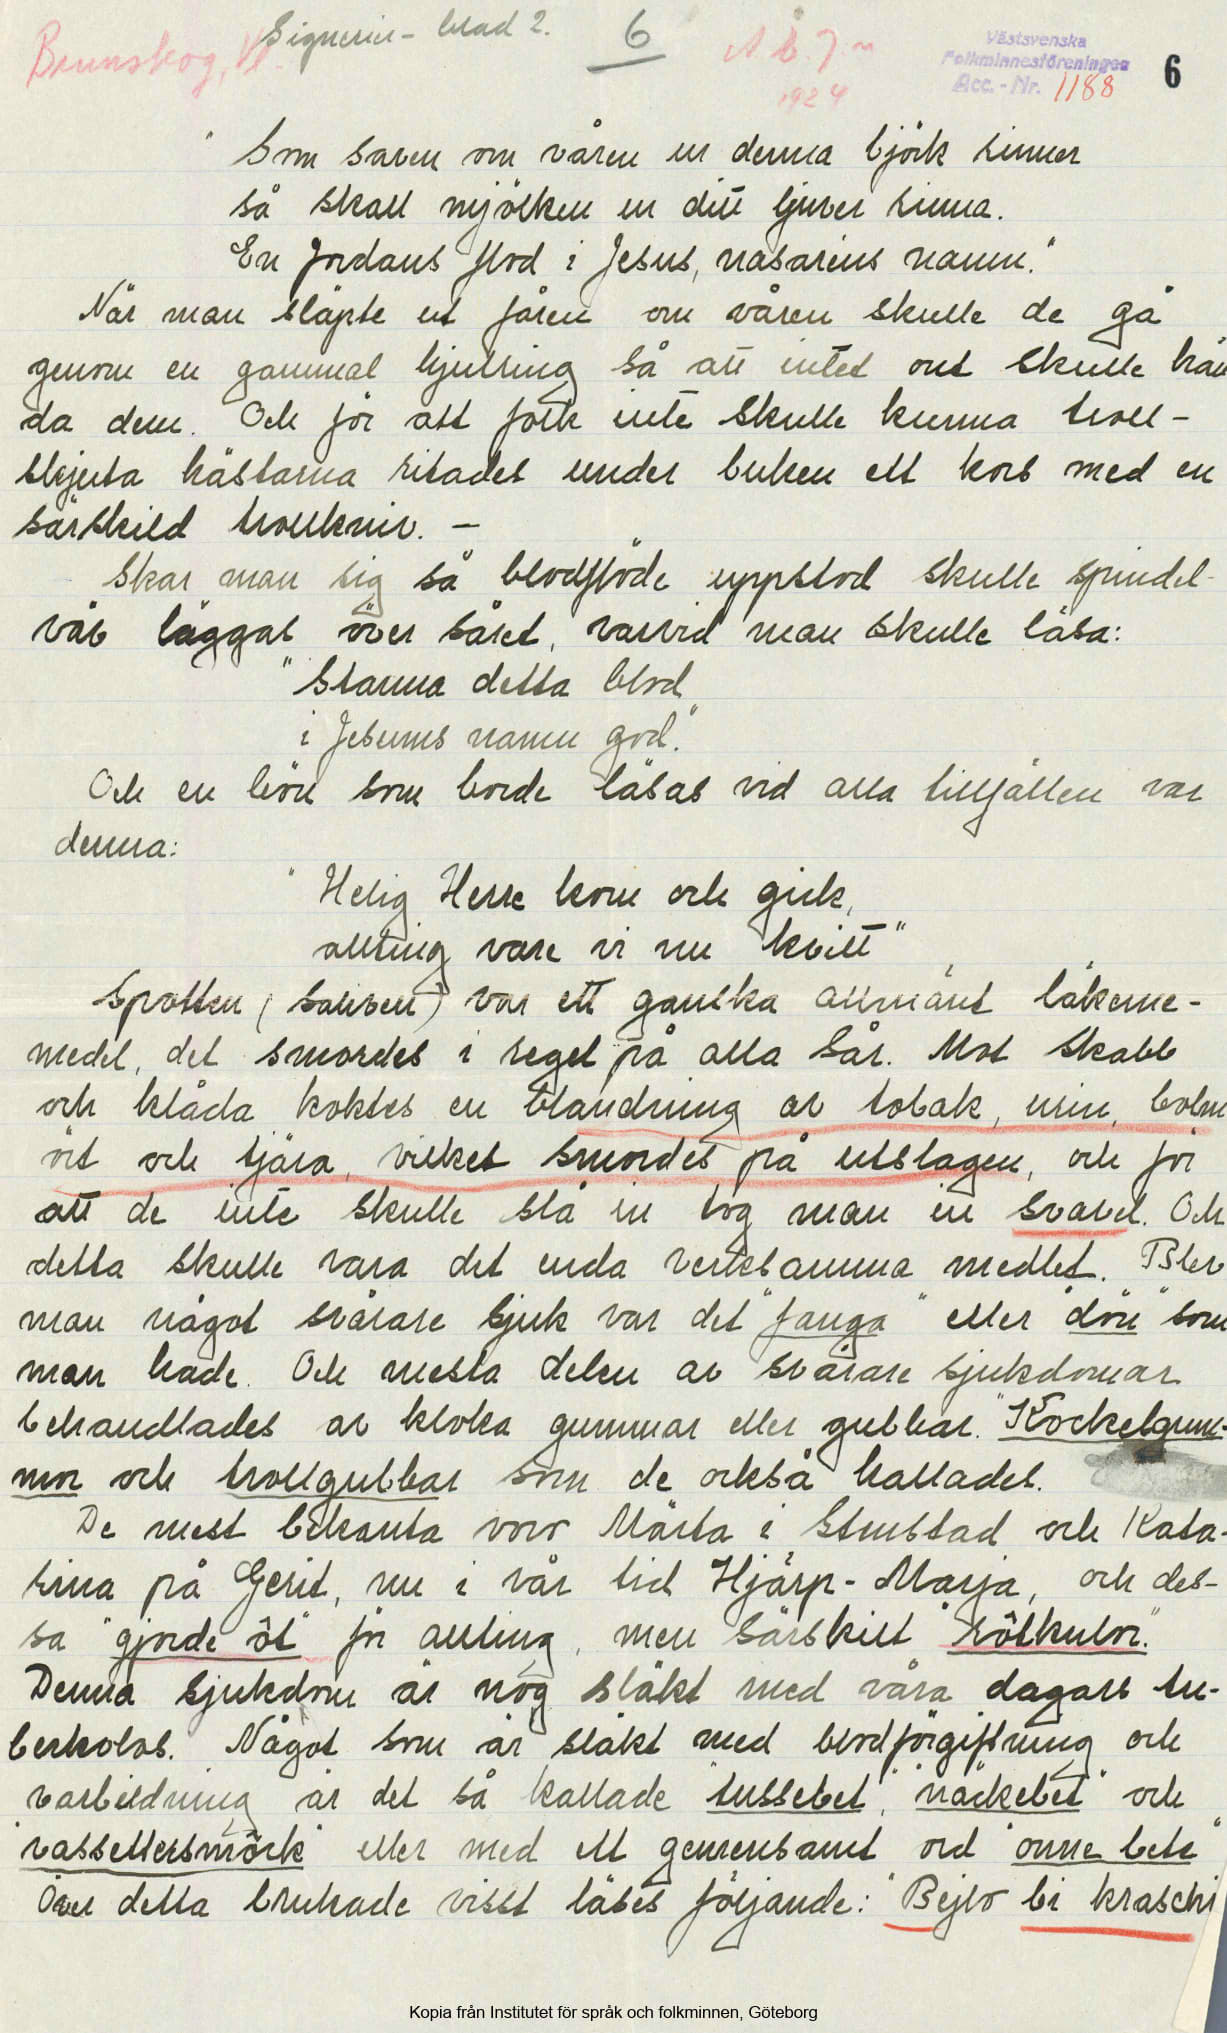 Brunskog, Vl.
Signerier - blad 2.
6
N. E. J-n
1924
Västsvenska
Folkminnesföreningen
Acc.-Nr. 1188
6
"Som saven om våren ur denna björk rinner
så skall mjölken ur ditt ljuver rinna.
En Jordans flod i Jesus, nasareus namn."
När man släpte ut fåren om våren skulle de gå
genom en gammal hjulring så att intet ont skulle hän
da dem. Och för att folk inte skulle kunna troll-
skjuta hästarna ritades under buken ett kors med en
särskild trollkniv. —
Skar man sig så blodflöde uppstod skulle spindel-
väv läggas över såret, varvid man skulle läsa:
"Stanna detta blod
i Jesums namn god."
Och en bön som borde läsas vid alla tillfällen var
denna:
"Helig Herre kom och gick,
allting vare vi nu kvitt"
Spotten (saliven) var ett ganska allmänt läkeme-
medel, det smordes i regel på alla sår. Mot skabb
och klåda koktes en blandning av tobak, urin, bolm
ört och tjära, vilket smordes på utslagen, och för
att de inte skulle slå in tog man in svavel. Och
detta skulle vara det enda verksamma medlet. Blev
man något svårare sjuk var det "fanga" eller "dön" som
man hade. Och mesta delen av svårare sjukdomar
behandlades av kloka gummar eller gubbar. "Kockelgum-
mor och trollgubbar som de också kallades.
De mest bekanta voro Märta i Stmstad och Kata-
rina på Gerit, nu i vår tid Hjärp-Marja, och des-
sa "gjorde öt" för allting, men särskilt "rötkulor."
Denna sjukdom är nog släkt med våra dagars tu-
berkolos. Något som är släkt med blodförgiftning och
varbildning är det så kallade "tussebet", "näckebet" och
"vassettersmörk" eller med ett gemensamt ord "onne bets"
Över detta brukade visst läses följande: "Bejlo bi kraschi
Kopia från Institutet för språk och folkminnen, Göteborg